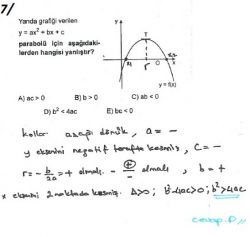 7/
Yanda grafiği verilen
y = ax² + bx + c
parabolü için aşağıdaki-
lerden hangisi yanlıştır?
A) ac > 0 B) b > 0 C) ab < 0
D) b² < 4ac E) bc < 0
y
T
x₁
r
x₂
x
y = f(x)
kollar aşağı dönük, a = -
y eksenini negatif tarafta kesmiş, c = -
r = -b/2a = + olmalı. - olmalı, b = +
x eksenini 2 noktada kesmiş. Δ>0; b²-4ac>0; b²>4ac
cevap D